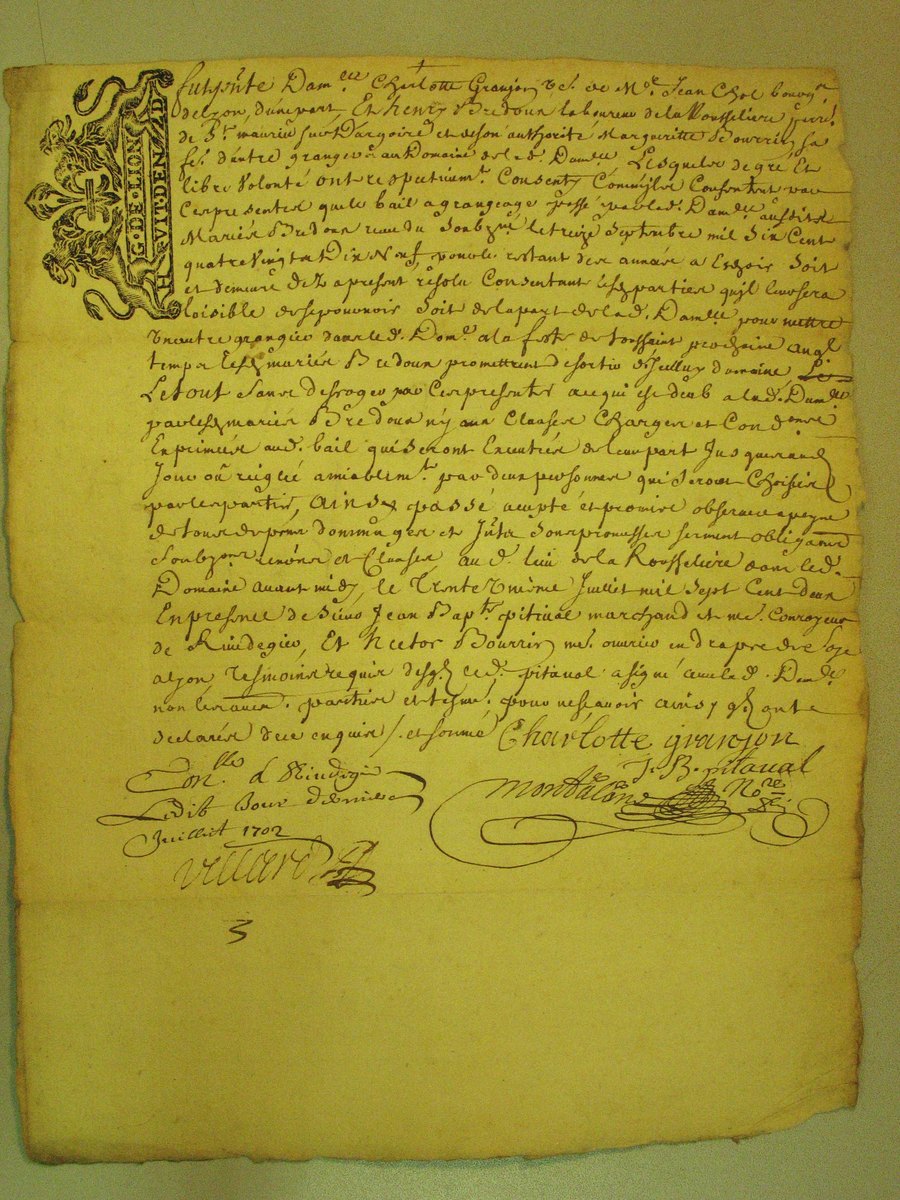 G·DE·LION
HVIT·DEN D
fut p̃nte Dam.lle Charlotte Granjon de Me. Jean Chol bourg.
delyon, dunepart, Et henry Bredoun laboureur dela Rousseliere
de St. maurice sur Dargoire et deson authorite Margueritte Bourrin sa
fe. dautre grangers au Domaine delad. Damlle Lesquels de gre Et
libre Volonté ont respectivemt. Consenty Comme Consentent par
Cespresentes quele bail a grangeage passé parlad. Damlle ausdits
Mariés Bredoun receu du Soubzné. letreize Septembre mil Six Cent
quatre Vingts Dix Neuf, pour le restant des années a Escheoir Soit
et demeure dez apresent résolu Consentant lesd parties quil leur sera
loisible desepourvoir Soit delapart delad. Damlle pour mettre
un autre granger dans led. Dome. ala feste de toussaint prochaine auql
temps lesd mariés Bredoun promettent desortir dicelluy domaine,
Letout Sans desroger par Cespresentes acequi est deub alad. Damlle
parlesd mariés Bredoun ny aux Clauses Charges et Condons.
Exprimées aud. bail quiseront Executées deleurpart Jusqueaud
Jour ou reglé amiablemt. par deux personnes qui seront Choisies
parlesparties, ainsy passé accepté et promis observer apeyne
detous despens dommages et Jnts. Sous promesses serment obligaons
Soubzmons. renõns et Clauses, aud. lieu dela Rousseliere dans led.
Domaine avant midy, le Trente Unième Juillet mil Sept Cent deux
Enpresence de Sieur Jean Bapte. pitival marchand et me. Conroyeur
de Rivedegier, Et hector Bourrin me. ouvrier en draps de Soye
alyon tesmoins requis desqls led. pitaval a signé avec lad. Damlle
non lesautres parties et tesms. pour ne scavoir ainsy qls ont
declarés dece enquis / et sommé Charlotte granjon
J. B. pitaval
Conlle. a Rivedegi
Ledit Jour dernier
Juillet 1702
Nore
Villard
3